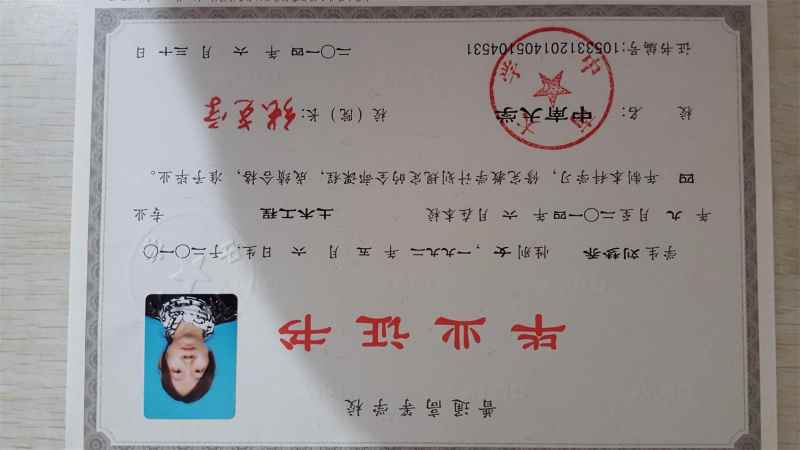 普通高等学校
毕业证书
学生 刘梦乔 性别 女 ，一九九二年 五 月 六 日生，于二〇一〇
年 九 月至二〇一四年 六 月在本校 土木工程 专业
四 年制本科学习，修完教学计划规定的全部课程，成绩合格，准予毕业。
校 名： 中南大学 校（院）长：
证书编号：105331201405104531 二〇一四 年 六 月 三十 日